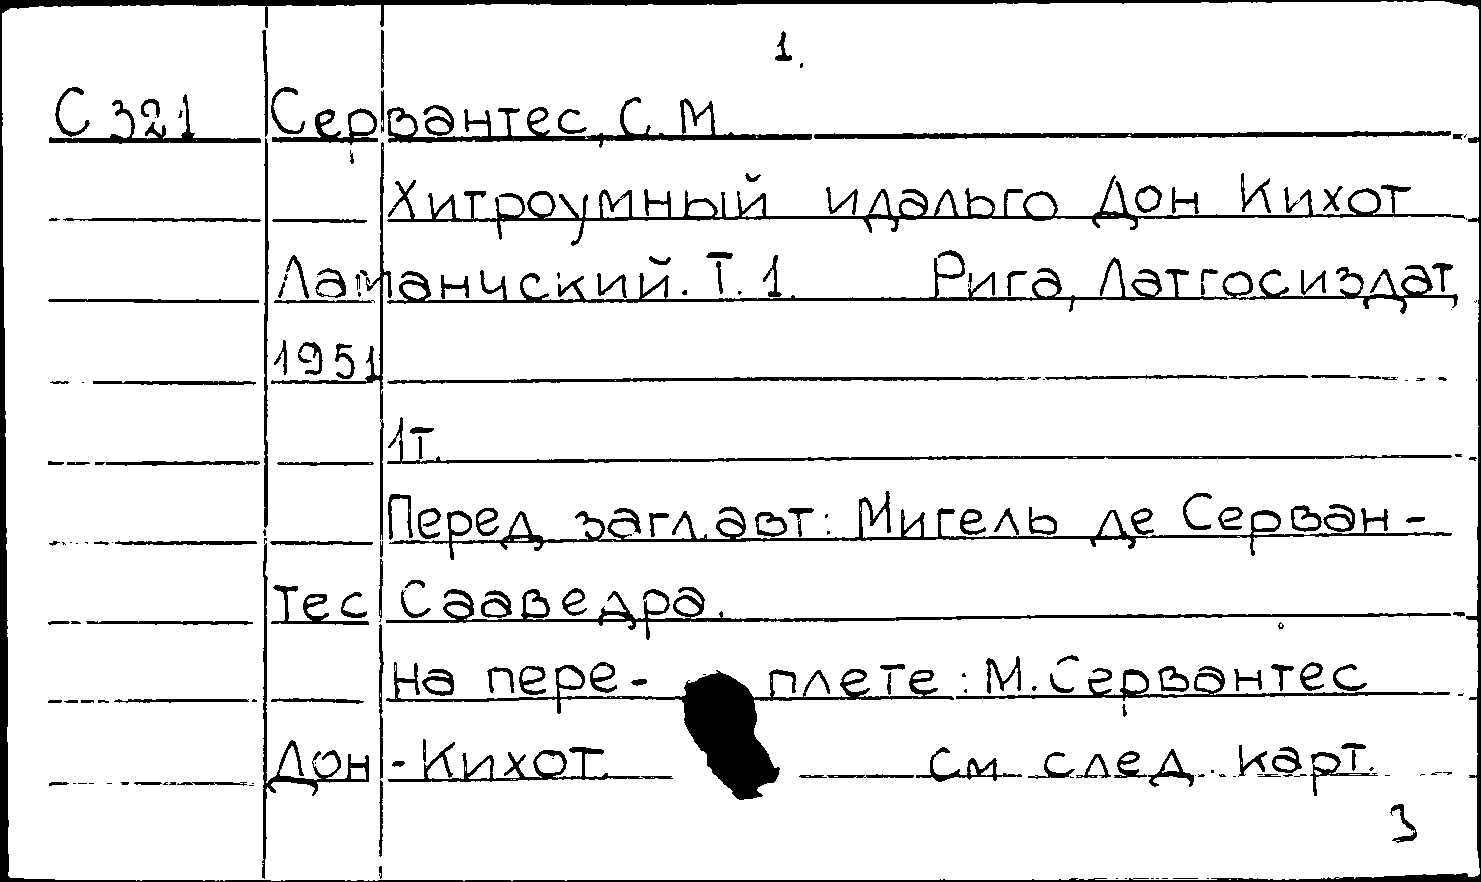 1.
С 321 Сервантес, С. М.
Хитроумный идальго Дон Кихот
Ламанчский. Т. 1. Рига, Латгосиздат,
1951
1т.
Перед загл. авт: Мигель де Серван-
тес Сааведра.
На пере- плете: М. Сервантес
Дон-Кихот. См. след. карт.
3